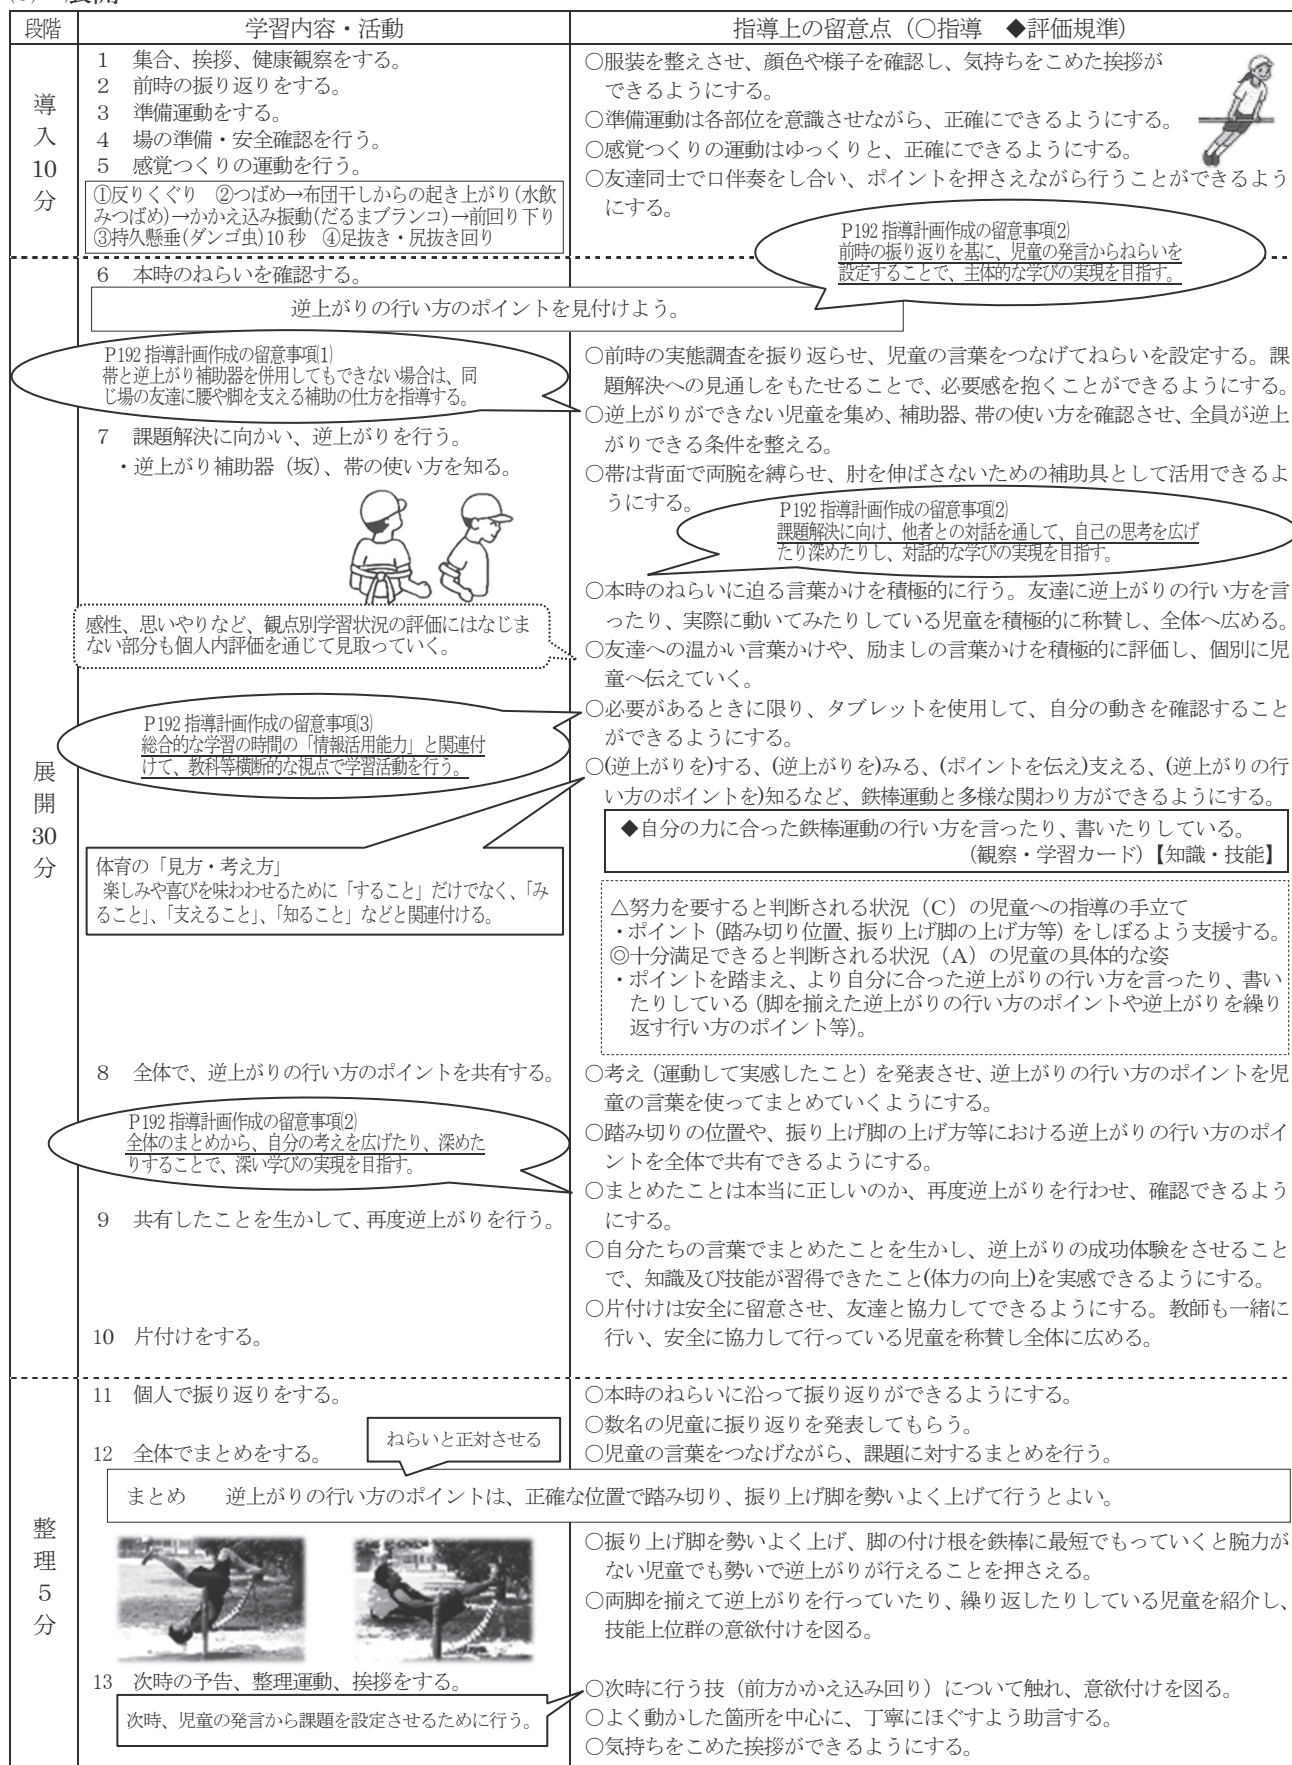 段階
学習内容・活動
指導上の留意点（○指導　◆評価規準）
導入10分
1　集合、挨拶、健康観察をする。
2　前時の振り返りをする。
3　準備運動をする。
4　場の準備・安全確認を行う。
5　感覚つくりの運動を行う。
①反りくぐり　②つばめ→布団干しからの起き上がり(水飲
みつばめ)→かかえ込み振動(だるまブランコ)→前回り下り
③持久懸垂(ダンゴ虫)10秒　④足抜き・尻抜き回り
○服装を整えさせ、顔色や様子を確認し、気持ちをこめた挨拶が
できるようにする。
○準備運動は各部位を意識させながら、正確にできるようにする。
○感覚つくりの運動はゆっくりと、正確にできるようにする。
○友達同士で口伴奏をし合い、ポイントを押さえながら行うことができるよう
にする。
P192 指導計画作成の留意事項(2)
前時の振り返りを基に、児童の発言からねらいを
設定することで、主体的な学びの実現を目指す。
展開30分
6　本時のねらいを確認する。
逆上がりの行い方のポイントを見付けよう。
P192 指導計画作成の留意事項(1)
帯と逆上がり補助器を併用してもできない場合は、同
じ場の友達に腰や脚を支える補助の仕方を指導する。
7　課題解決に向かい、逆上がりを行う。
・逆上がり補助器（坂）、帯の使い方を知る。
○前時の実態調査を振り返らせ、児童の言葉をつなげてねらいを設定する。課
題解決への見通しをもたせることで、必要感を抱くことができるようにする。
○逆上がりができない児童を集め、補助器、帯の使い方を確認させ、全員が逆上
がりできる条件を整える。
○帯は背面で両腕を縛らせ、肘を伸ばさないための補助具として活用できるよ
うにする。
P192 指導計画作成の留意事項(2)
課題解決に向け、他者との対話を通して、自己の思考を広げ
たり深めたりし、対話的な学びの実現を目指す。
感性、思いやりなど、観点別学習状況の評価にはなじま
ない部分も個人内評価を通じて見取っていく。
○本時のねらいに迫る言葉かけを積極的に行う。友達に逆上がりの行い方を言
ったり、実際に動いてみたりしている児童を積極的に称賛し、全体へ広める。
○友達への温かい言葉かけや、励ましの言葉かけを積極的に評価し、個別に児
童へ伝えていく。
P192 指導計画作成の留意事項(3)
総合的な学習の時間の「情報活用能力」と関連付
けて、教科等横断的な視点で学習活動を行う。
○必要があるときに限り、タブレットを使用して、自分の動きを確認すること
ができるようにする。
○(逆上がりを)する、(逆上がりを)みる、(ポイントを伝え)支える、(逆上がりの行
い方のポイントを)知るなど、鉄棒運動と多様な関わり方ができるようにする。
体育の「見方・考え方」
楽しみや喜びを味わわせるために「すること」だけでなく、「み
ること」、「支えること」、「知ること」などと関連付ける。
◆自分の力に合った鉄棒運動の行い方を言ったり、書いたりしている。
（観察・学習カード）【知識・技能】
△努力を要すると判断される状況（C）の児童への指導の手立て
・ポイント（踏み切り位置、振り上げ脚の上げ方等）をしぼるよう支援する。
◎十分満足できると判断される状況（A）の児童の具体的な姿
・ポイントを踏まえ、より自分に合った逆上がりの行い方を言ったり、書い
たりしている（脚を揃えた逆上がりの行い方のポイントや逆上がりを繰り
返す行い方のポイント等）。
8　全体で、逆上がりの行い方のポイントを共有する。
P192 指導計画作成の留意事項(2)
全体のまとめから、自分の考えを広げたり、深めた
りすることで、深い学びの実現を目指す。
9　共有したことを生かして、再度逆上がりを行う。
10　片付けをする。
○考え（運動して実感したこと）を発表させ、逆上がりの行い方のポイントを児
童の言葉を使ってまとめていくようにする。
○踏み切りの位置や、振り上げ脚の上げ方等における逆上がりの行い方のポイ
ントを全体で共有できるようにする。
○まとめたことは本当に正しいのか、再度逆上がりを行わせ、確認できるよう
にする。
○自分たちの言葉でまとめたことを生かし、逆上がりの成功体験をさせること
で、知識及び技能が習得できたこと(体力の向上)を実感できるようにする。
○片付けは安全に留意させ、友達と協力してできるようにする。教師も一緒に
行い、安全に協力して行っている児童を称賛し全体に広める。
整理5分
11　個人で振り返りをする。
12　全体でまとめをする。
ねらいと正対させる
○本時のねらいに沿って振り返りができるようにする。
○数名の児童に振り返りを発表してもらう。
○児童の言葉をつなげながら、課題に対するまとめを行う。
まとめ　　逆上がりの行い方のポイントは、正確な位置で踏み切り、振り上げ脚を勢いよく上げて行うとよい。
○振り上げ脚を勢いよく上げ、脚の付け根を鉄棒に最短でもっていくと腕力が
ない児童でも勢いで逆上がりが行えることを押さえる。
○両脚を揃えて逆上がりを行っていたり、繰り返したりしている児童を紹介し、
技能上位群の意欲付けを図る。
13　次時の予告、整理運動、挨拶をする。
次時、児童の発言から課題を設定させるために行う。
○次時に行う技（前方かかえ込み回り）について触れ、意欲付けを図る。
○よく動かした箇所を中心に、丁寧にほぐすよう助言する。
○気持ちをこめた挨拶ができるようにする。